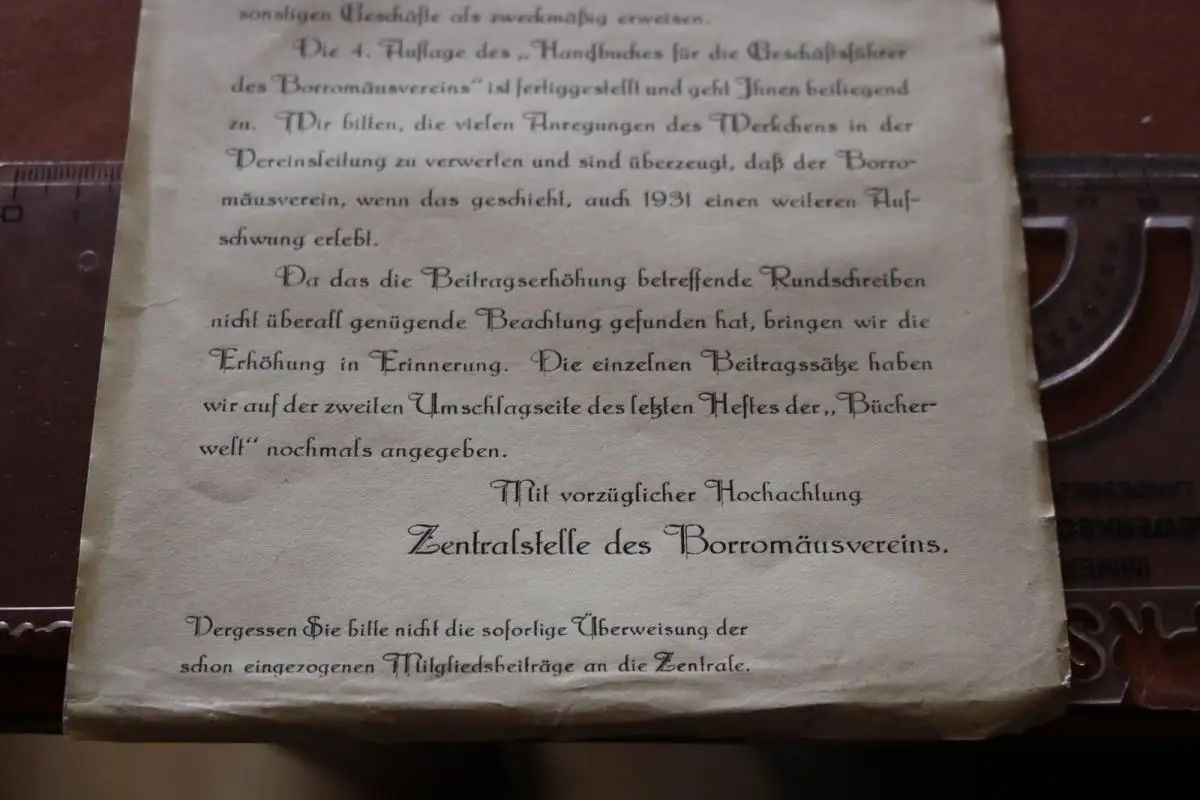 sonstigen Geschäfte als zweckmäßig erweisen.
Die 4. Auflage des „Handbuches für die Geschäftsführer
des Borromäusvereins“ ist fertiggestellt und geht Ihnen beiliegend
zu. Wir bitten, die vielen Anregungen des Werkchens in der
Vereinsleitung zu verwerten und sind überzeugt, daß der Borro-
mäusverein, wenn das geschieht, auch 1931 einen weiteren Auf-
schwung erlebt.
Da das die Beitragserhöhung betreffende Rundschreiben
nicht überall genügende Beachtung gefunden hat, bringen wir die
Erhöhung in Erinnerung. Die einzelnen Beitragssätze haben
wir auf der zweiten Umschlagseite des letzten Heftes der „Bücher-
welt“ nochmals angegeben.
Mit vorzüglicher Hochachtung
Zentralstelle des Borromäusvereins.
Vergessen Sie bitte nicht die sofortige Überweisung der
schon eingezogenen Mitgliedsbeiträge an die Zentrale.
0 1